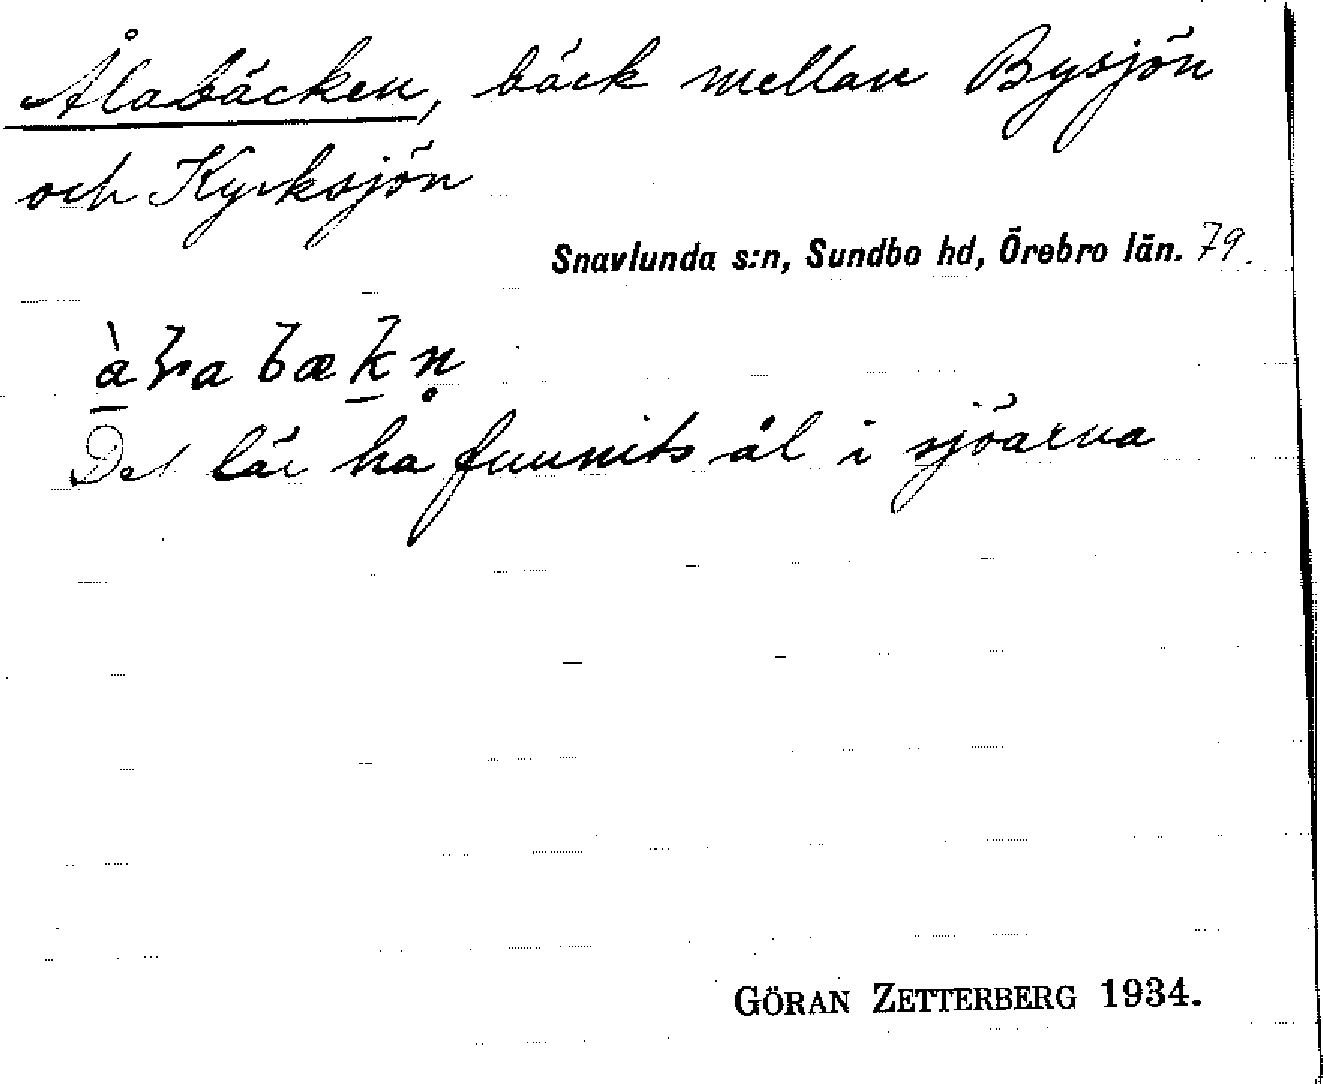 Ålabäcken, bäck mellan Bysjön
och Kyrksjön
Snavlunda s:n, Sundbo hd, Örebro län. 79.
Det lär ha funnits ål i sjöarna
GÖRAN ZETTERBERG 1934.